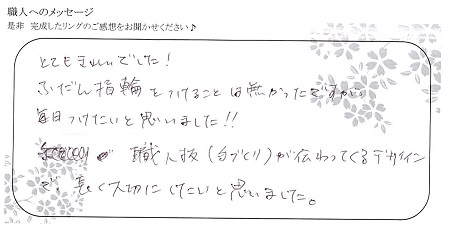 職人へのメッセージ
是非 完成したリングのご感想をお聞かせください♪
とてもきれいでした!
ふだん指輪をつけることは無かったですが、
毎日つけたいと思いました!!
職人技(手づくり)が伝わってくるデザイン
で 長く大切にしたいと思いました。